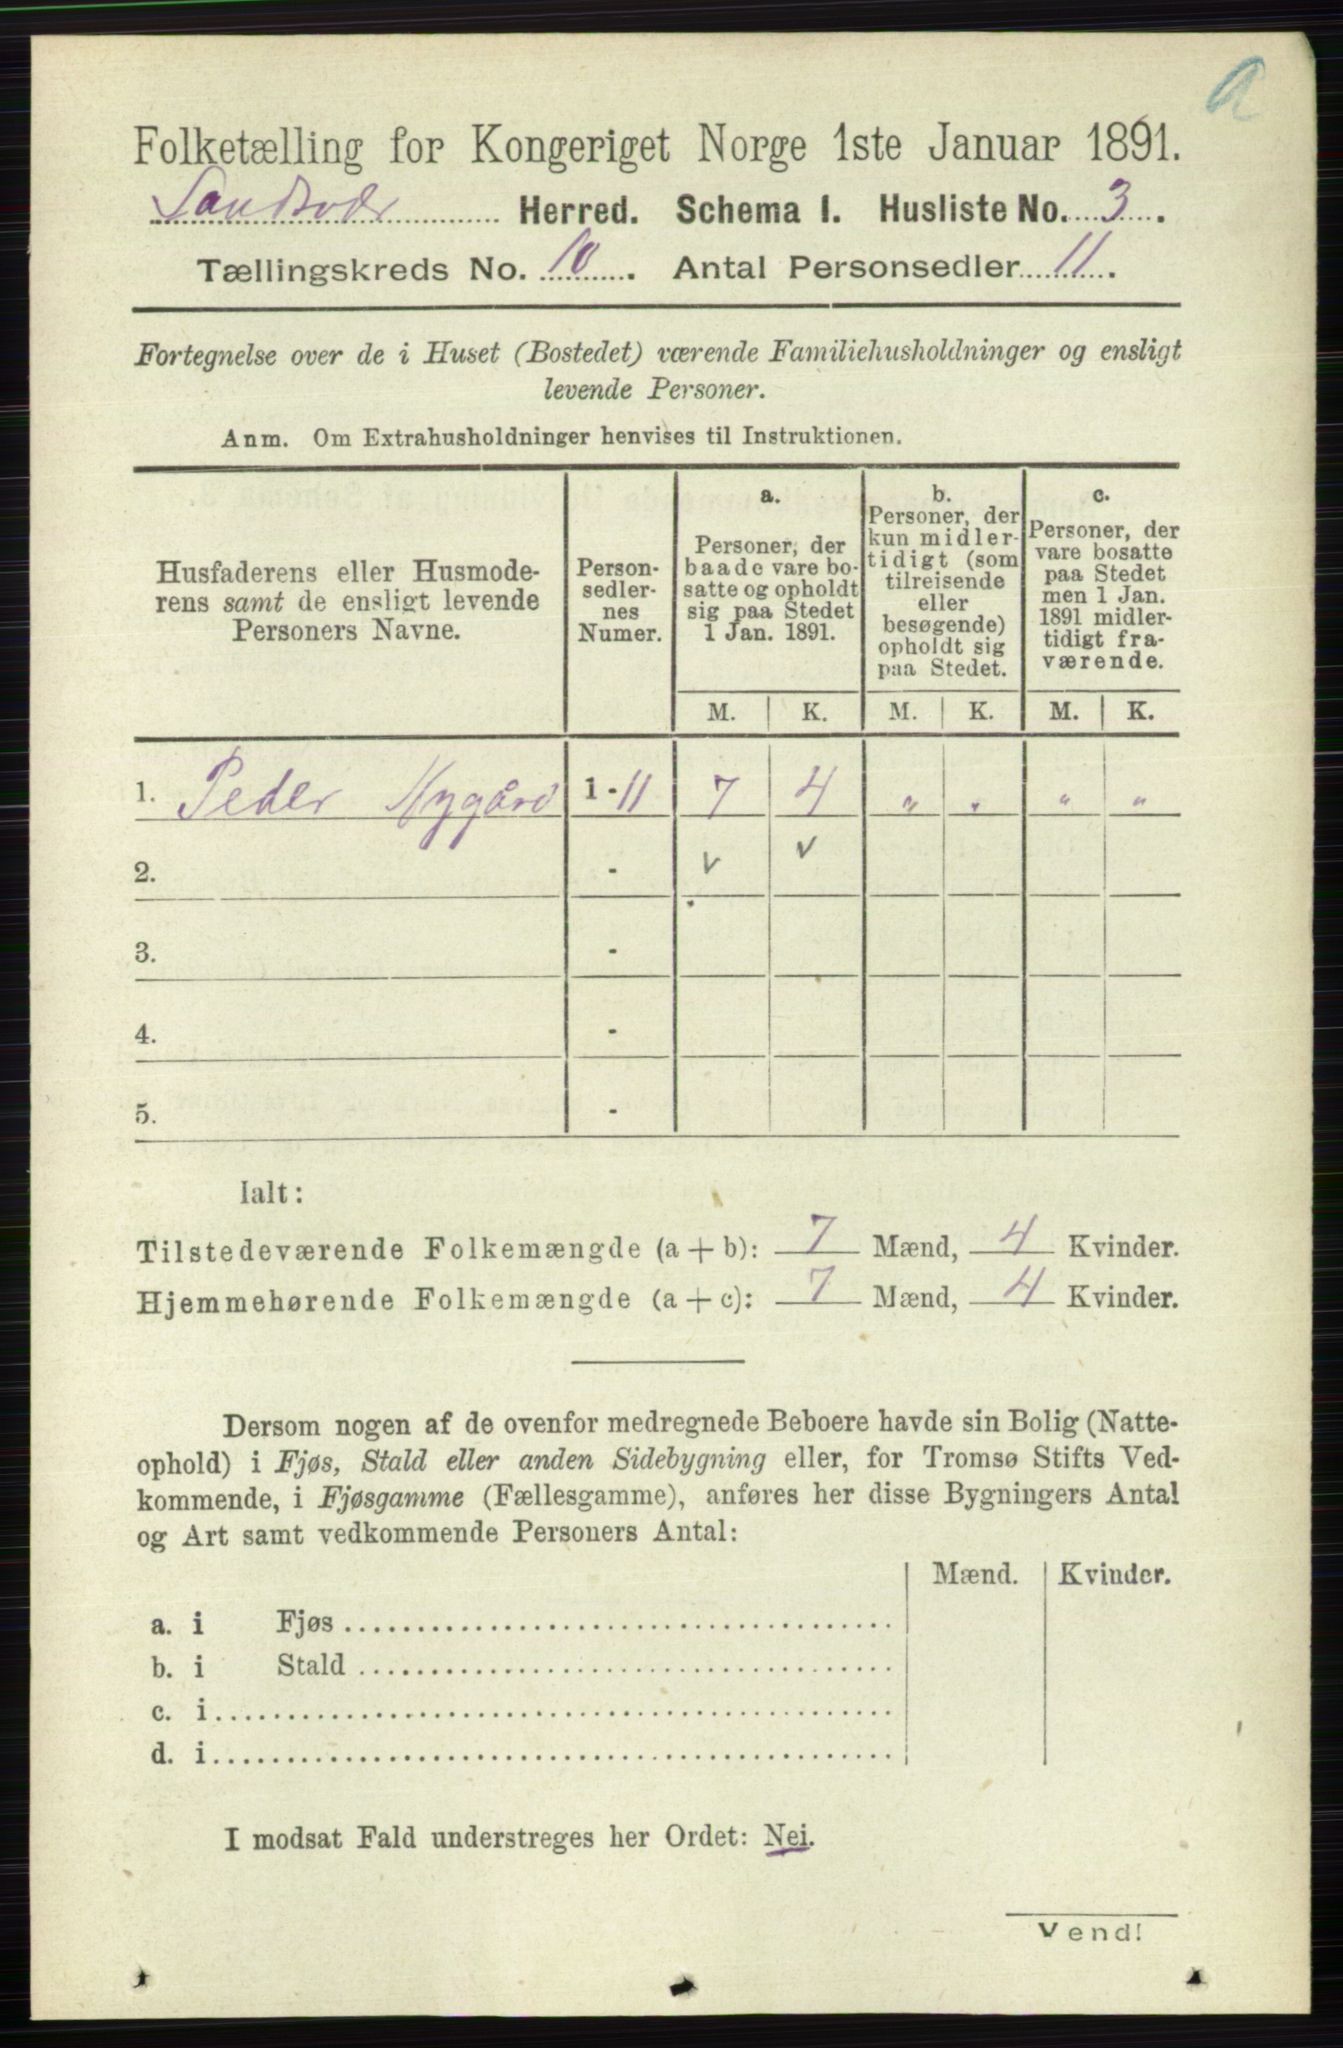 a
Folketælling for Kongeriget Norge 1ste Januar 1891.
Sandsvær Herred. Schema I. Husliste No. 3.
Tællingskreds No. 10. Antal Personsedler 11.
Fortegnelse over de i Huset (Bostedet) værende Familiehusholdninger og ensligt
levende Personer.
Anm. Om Extrahusholdninger henvises til Instruktionen.
Husfaderens eller Husmode-
rens samt de ensligt levende
Personers Navne.
Person-
sedler-
nes
Numer.
a.
Personer, der
baade vare bo-
satte og opholdt
sig paa Stedet
1 Jan. 1891.
b.
Personer, der
kun midler-
tidigt (som
tilreisende
eller
besøgende)
opholdt sig
paa Stedet.
c.
Personer, der
vare bosatte
paa Stedet
men 1 Jan.
1891 midler-
tidigt fra-
værende.
M. K. M. K. M. K.
1. Peder Nygård 1-11 7 4 " " " "
2. - v v
3. -
4. -
5. -
Ialt:
Tilstedeværende Folkemængde (a + b): 7 Mænd, 4 Kvinder.
Hjemmehørende Folkemængde (a + c): 7 Mænd, 4 Kvinder.
Dersom nogen af de ovenfor medregnede Beboere havde sin Bolig (Natte-
ophold) i Fjøs, Stald eller anden Sidebygning eller, for Tromsø Stifts Ved-
kommende, i Fjøsgamme (Fællesgamme), anføres her disse Bygningers Antal
og Art samt vedkommende Personers Antal:
Mænd. Kvinder.
a. i Fjøs
b. i Stald
c. i
d. i
I modsat Fald understreges her Ordet: Nei.
Vend!